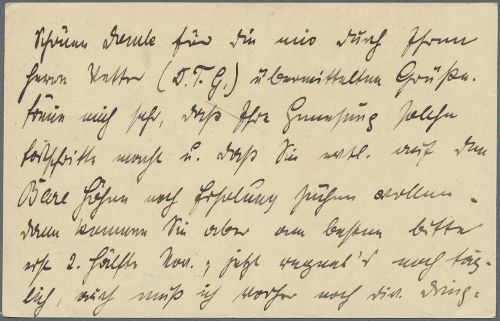 Schönen Dank für die mir durch Ihren
Herrn Vetter (D.T.G.) übermittelten Grüße.
Freue mich sehr, daß Ihre Genesung solche
Fortschritte macht u. daß Sie evtl. auf den
Höhen noch Erholung suchen wollen.
Dann kommen Sie aber am besten bitte
erst 2. Hälfte Nov.; jetzt regnet's noch täg-
lich, auch muß ich vorher noch div. dring-